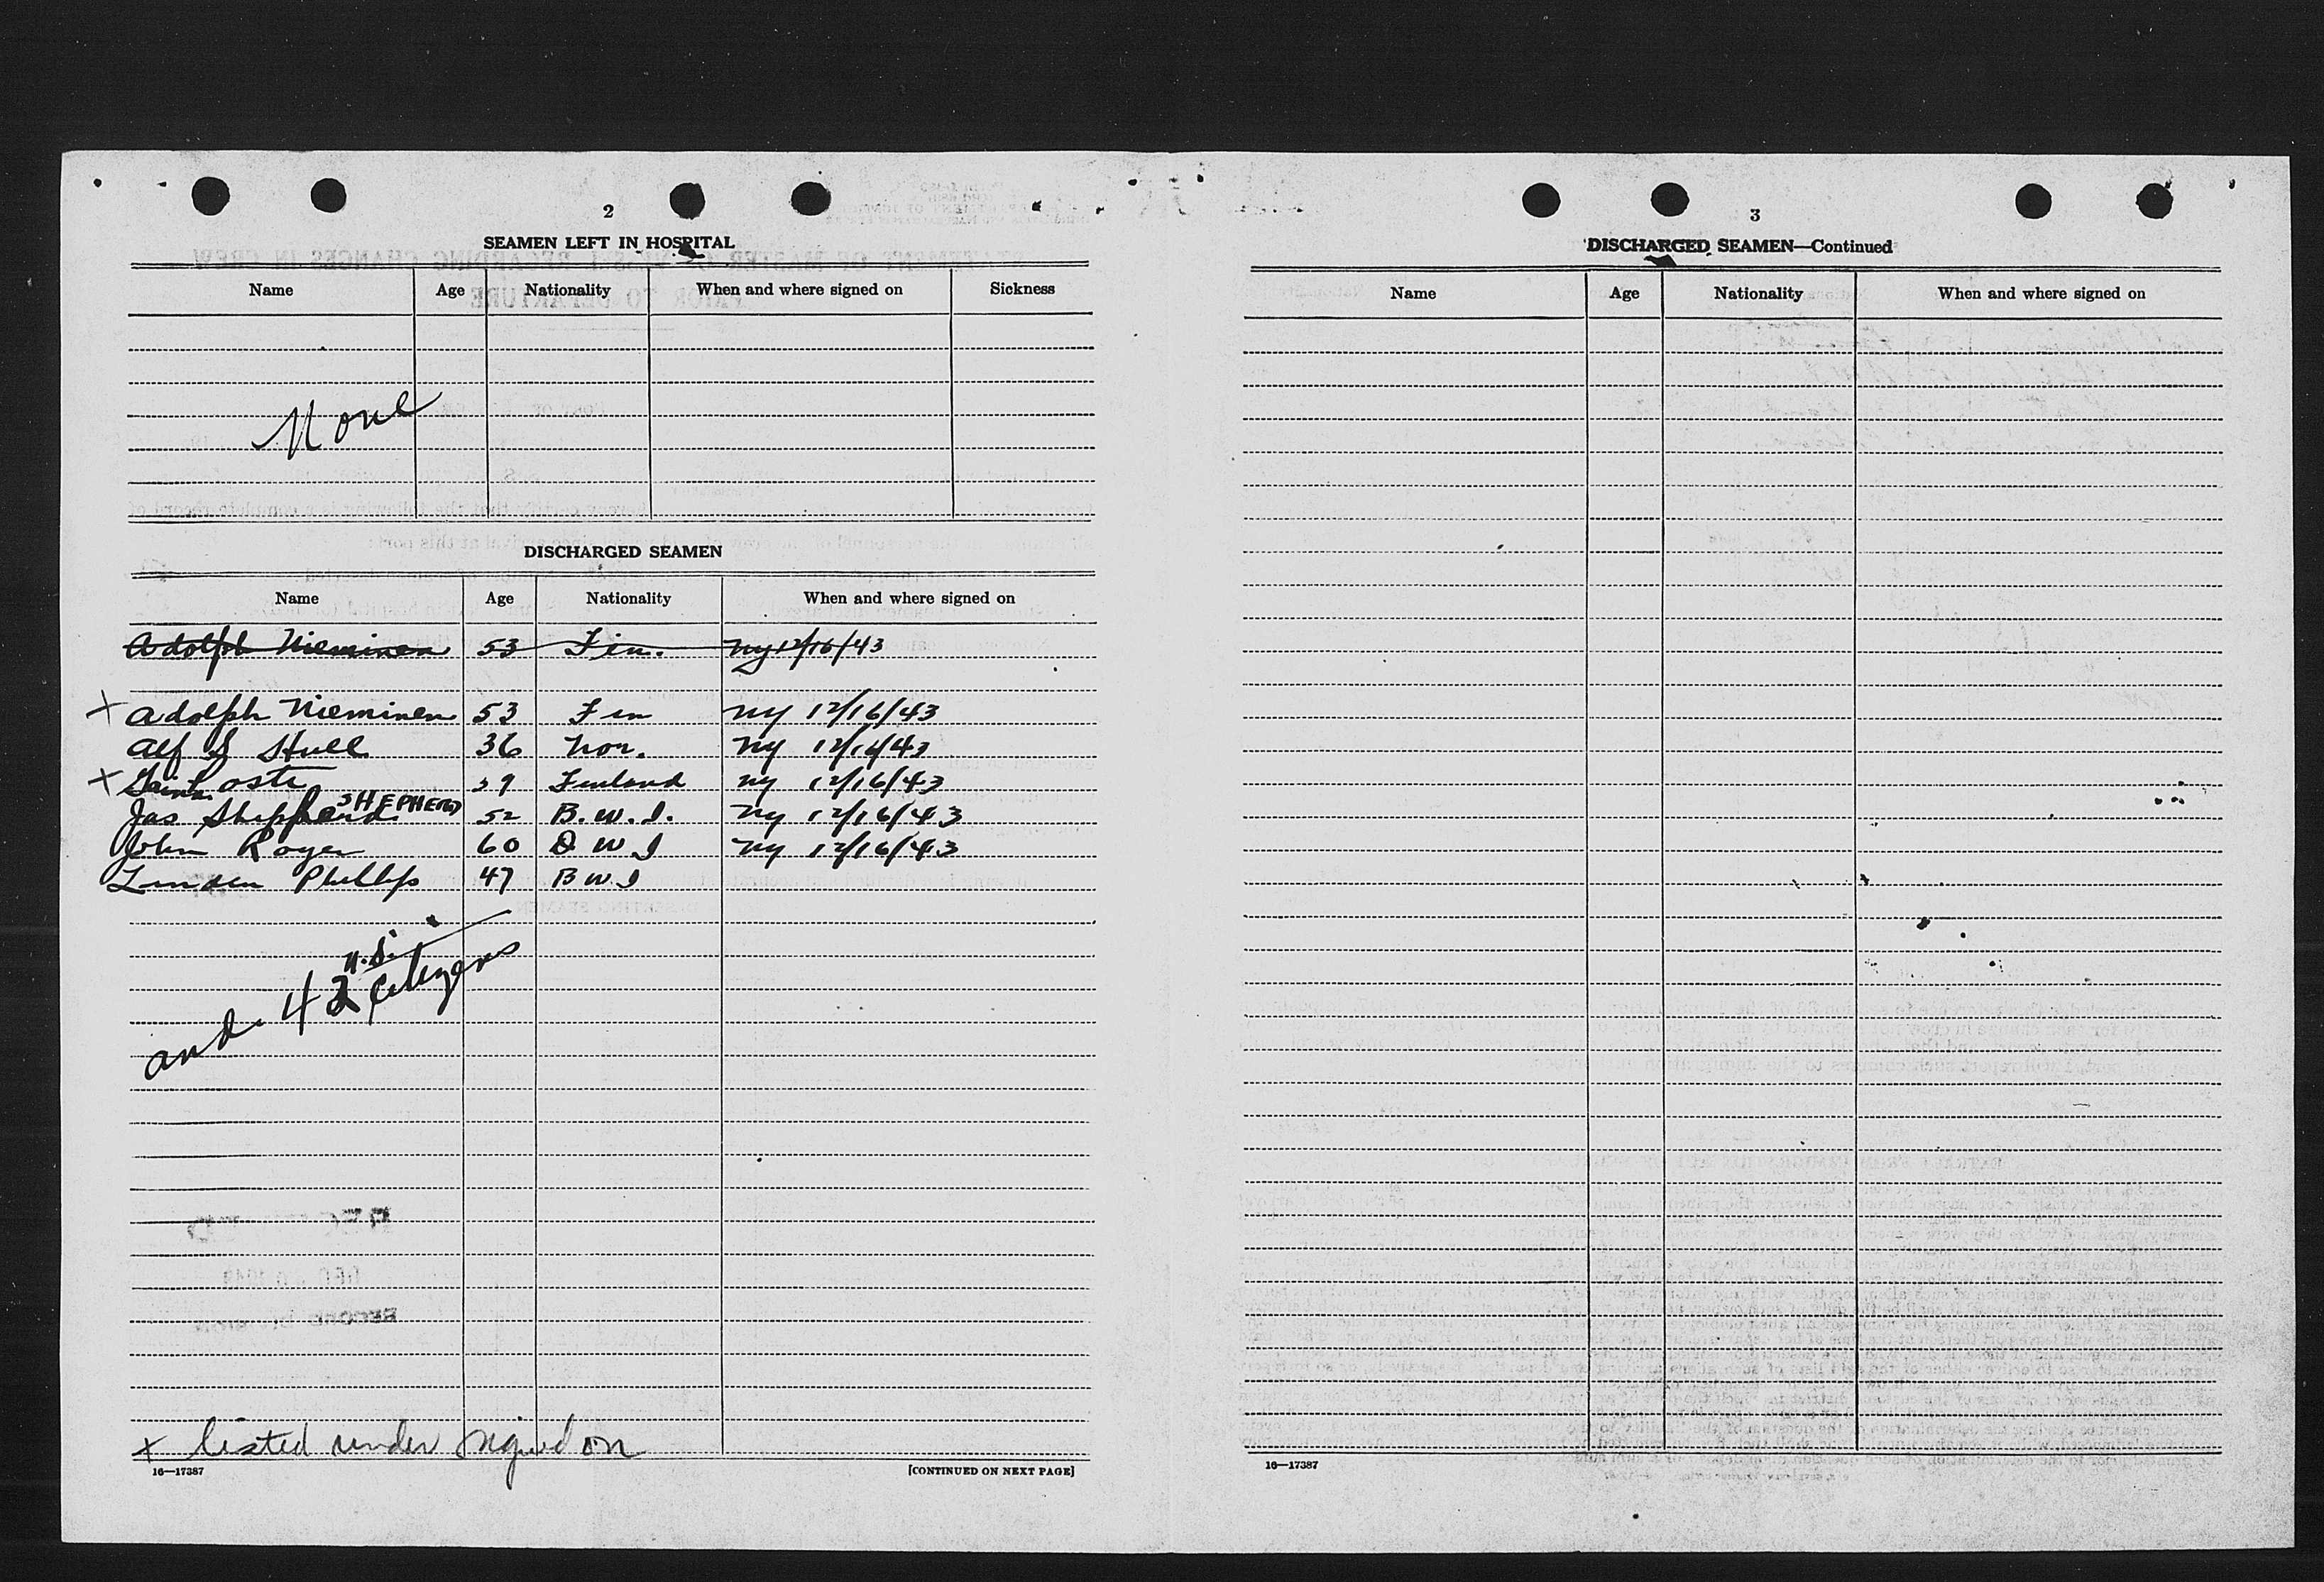 2
SEAMEN LEFT IN HOSPITAL
Name Age Nationality When and where signed on Sickness
None
DISCHARGED SEAMEN
Name Age Nationality When and where signed on
Adolph Nieminen 53 Fin. NY 12/16/43
+ Adolph Nieminen 53 Fin NY 12/16/43
Alf S Hull 36 Nor. NY 12/16/43
+ Oste 39 Finland NY 12/16/43
SHEPHERD
Jas Shepherd 52 B.W.I. NY 12/16/43
John Royer 60 D W I NY 12/16/43
Linden Phillips 47 B W I
U.S.
and 42 Citizens
+ listed under signed on
16—17387 [CONTINUED ON NEXT PAGE]
3
DISCHARGED SEAMEN—Continued
Name Age Nationality When and where signed on
16—17387